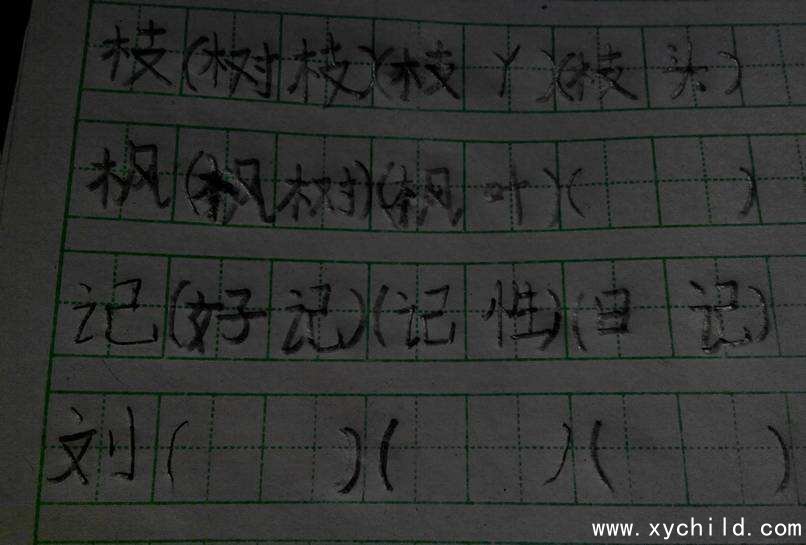 枝(树枝)(枝丫)(枝头)
枫(枫树)(枫叶)( )
记(好记)(记性)(日记)
刘( )( )( )
www.xychild.com